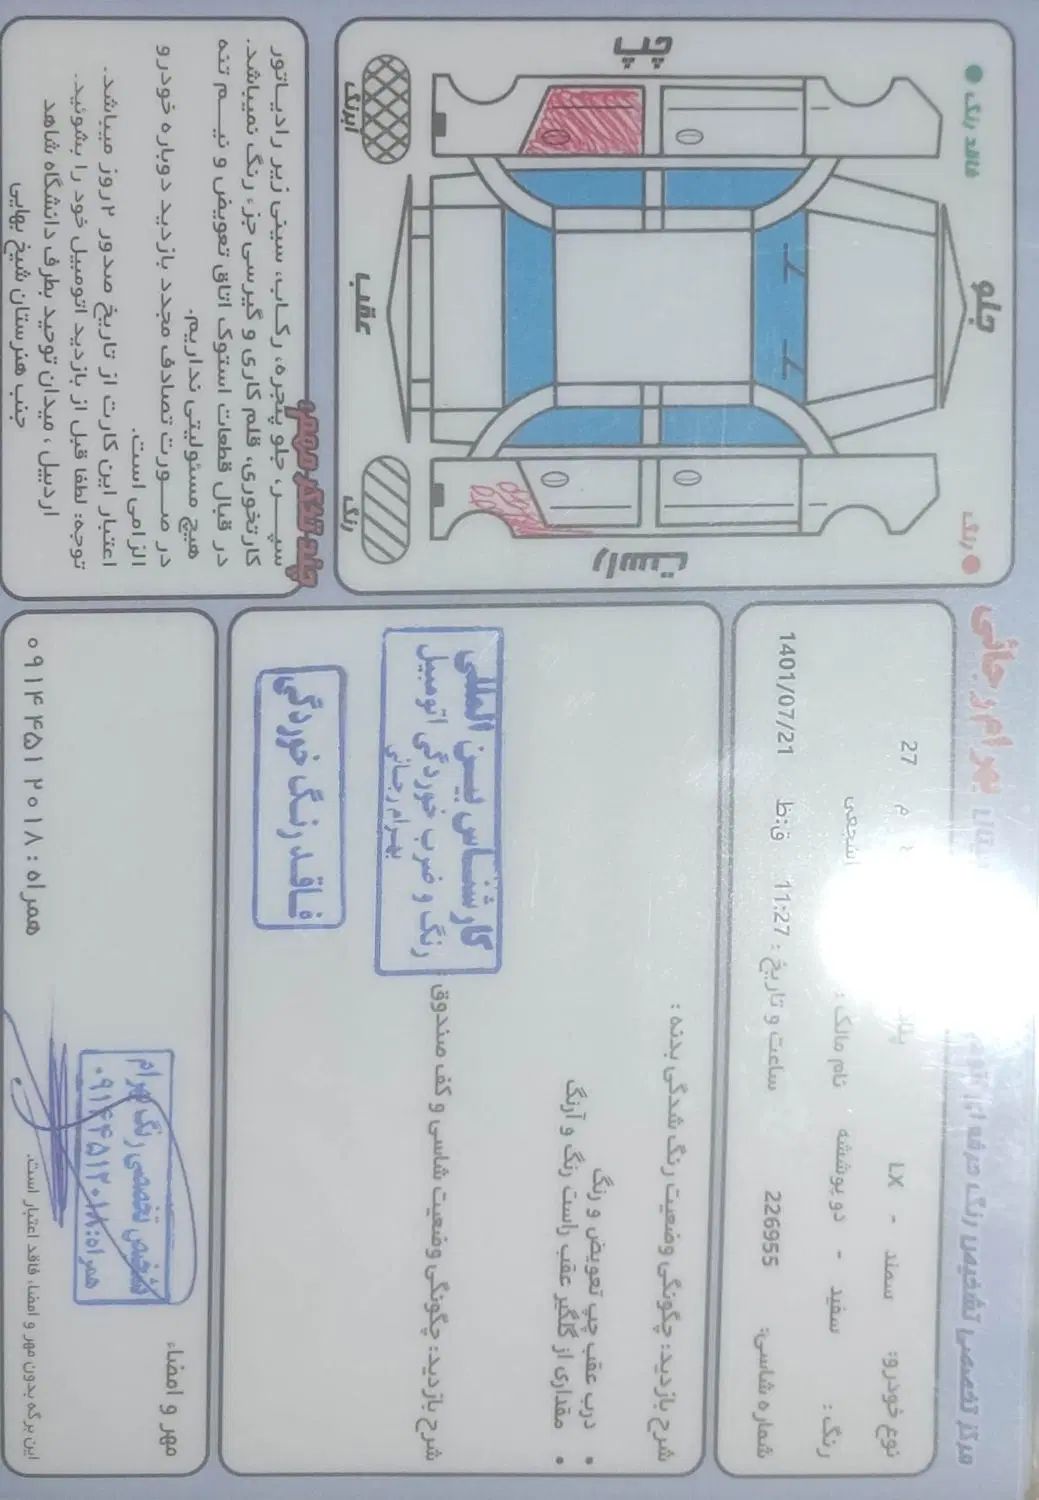 مرکز تخصصی تشخیص رنگ حرفه ای
بهرام رجائی
نوع خودرو: سمند - LX
م
27
رنگ: سفید - دو پوششه
نام مالک:
شماره شاسی: 226955
ساعت و تاریخ: 11:27 ق.ظ 1401/07/21
شرح بازدید: چگونگی وضعیت رنگ شدگی بدنه:
• درب عقب چپ تعویض و رنگ
• مقداری از گلگیر عقب راست رنگ و آبرنگ
شرح بازدید: چگونگی وضعیت شاسی و کف صندوق:
کارشناس بین المللی
رنگ و ضرب خوردگی اتومبیل
بهرام رجائی
فاقد رنگ خوردگی
مهر و امضاء
تشخیص تخصصی رنگ بهرام
همراه: ۰۹۱۴۴۵۱۲۰۱۸
همراه: ۰۹۱۴ ۴۵۱ ۲۰۱۸
این برگه بدون مهر و امضاء فاقد اعتبار است.
● رنگ
● فاقد رنگ
جلو
راست
چپ
عقب
رنگ
آبرنگ
چند تذکر مهم:
سپر، جلو پنجره، رکاب، سینی زیر رادیاتور
کارتخوری، قلم کاری و گیرسی جزء رنگ نمیباشد.
در قبال قطعات استوک اتاق تعویض و نیم تنه
هیچ مسئولیتی نداریم.
در صورت تصادف مجدد بازدید دوباره خودرو
الزامی است.
اعتبار این کارت از تاریخ صدور ۲ روز میباشد.
توجه: لطفا قبل از بازدید اتومبیل خود را بشوئید.
اردبیل، میدان توحید بطرف دانشگاه شاهد
جنب هنرستان شیخ بهایی